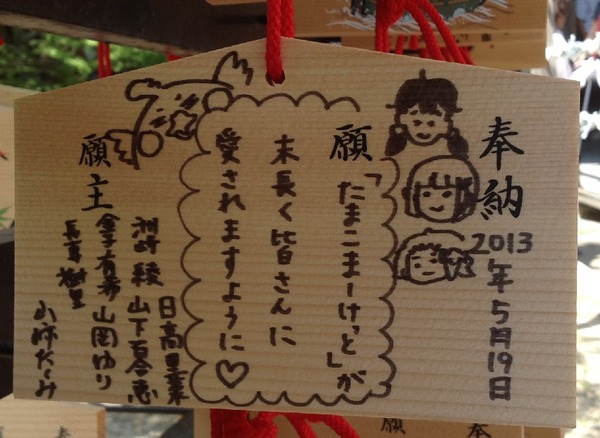 奉納
2013年5月19日
願
「たまこまーけっと」が
末長く皆さんに
愛されますように♡
願主
日高里菜
洲崎綾 山下百合恵
金子有希 山岡ゆり
長妻樹里
山下
願
奉